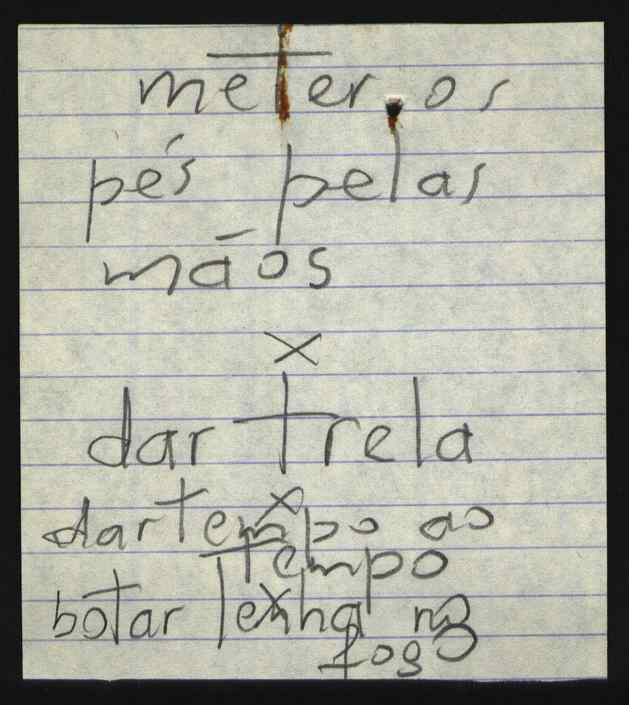 meter os
pés pelas
mãos
x
dar trela
x
dar tempo ao
tempo
x
botar lenha no
fogo